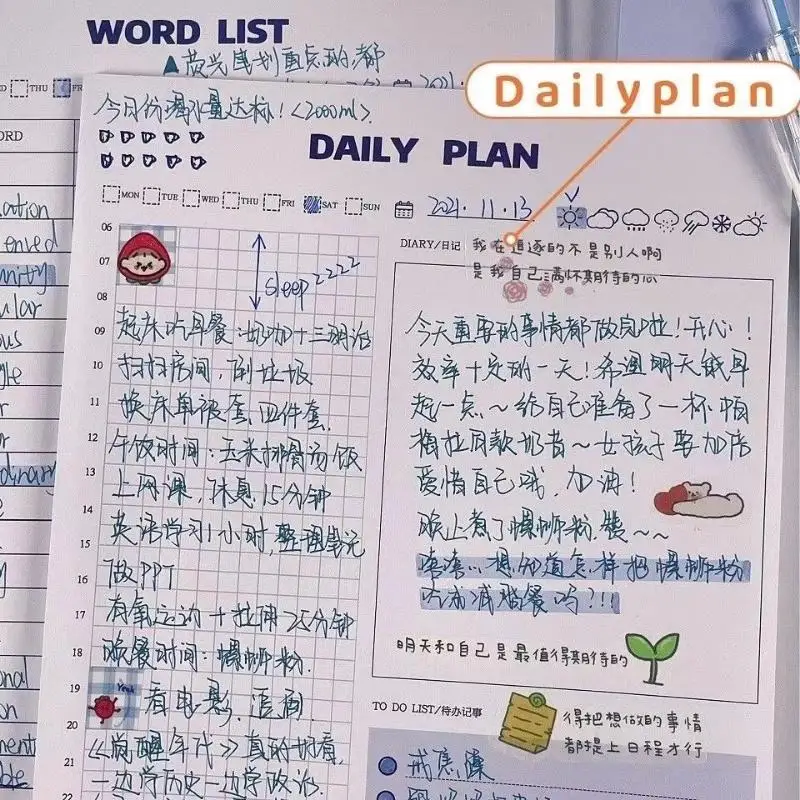 WORD LIST
荧光笔划重点的都
THU
Dailyplan
今日份喝水量达标！（2000ml）.
DAILY PLAN
MON TUE WED THU FRI SAT SUN
2021.11.13
DIARY/日记
我在追逐的不是别人啊
是我自己满怀期待的心
06
07
08
sleep zzzz
09 起床吃早餐：奶咖+三明治
10 扫扫房间，倒垃圾
11 换床单被套，四件套.
12 午饭时间：玉米排骨汤饭
13 上网课，休息15分钟
14
15 英语学习1小时，整理笔记
16 做PPT
17 有氧运动+拉伸25分钟
18 晚餐时间：螺蛳粉.
19 Yeah 看电影，追剧.
20 《觉醒年代》真的好看，
21 一边学历史一边学政治.
22
今天重要的事情都做完啦！开心！
效率十足的一天！希望明天能早
起一点～给自己准备了一杯帕
梅拉同款奶昔～女孩子要加倍
爱惜自己哦，加油！
晚上煮了螺蛳粉，～～
嘻嘻…想知道怎样把螺蛳粉
吃成减脂餐吗？!!!
明天和自己是最值得期待的
TO DO LIST/待办记事
得把想做的事情
都提上日程才行
戒焦虑
WORD